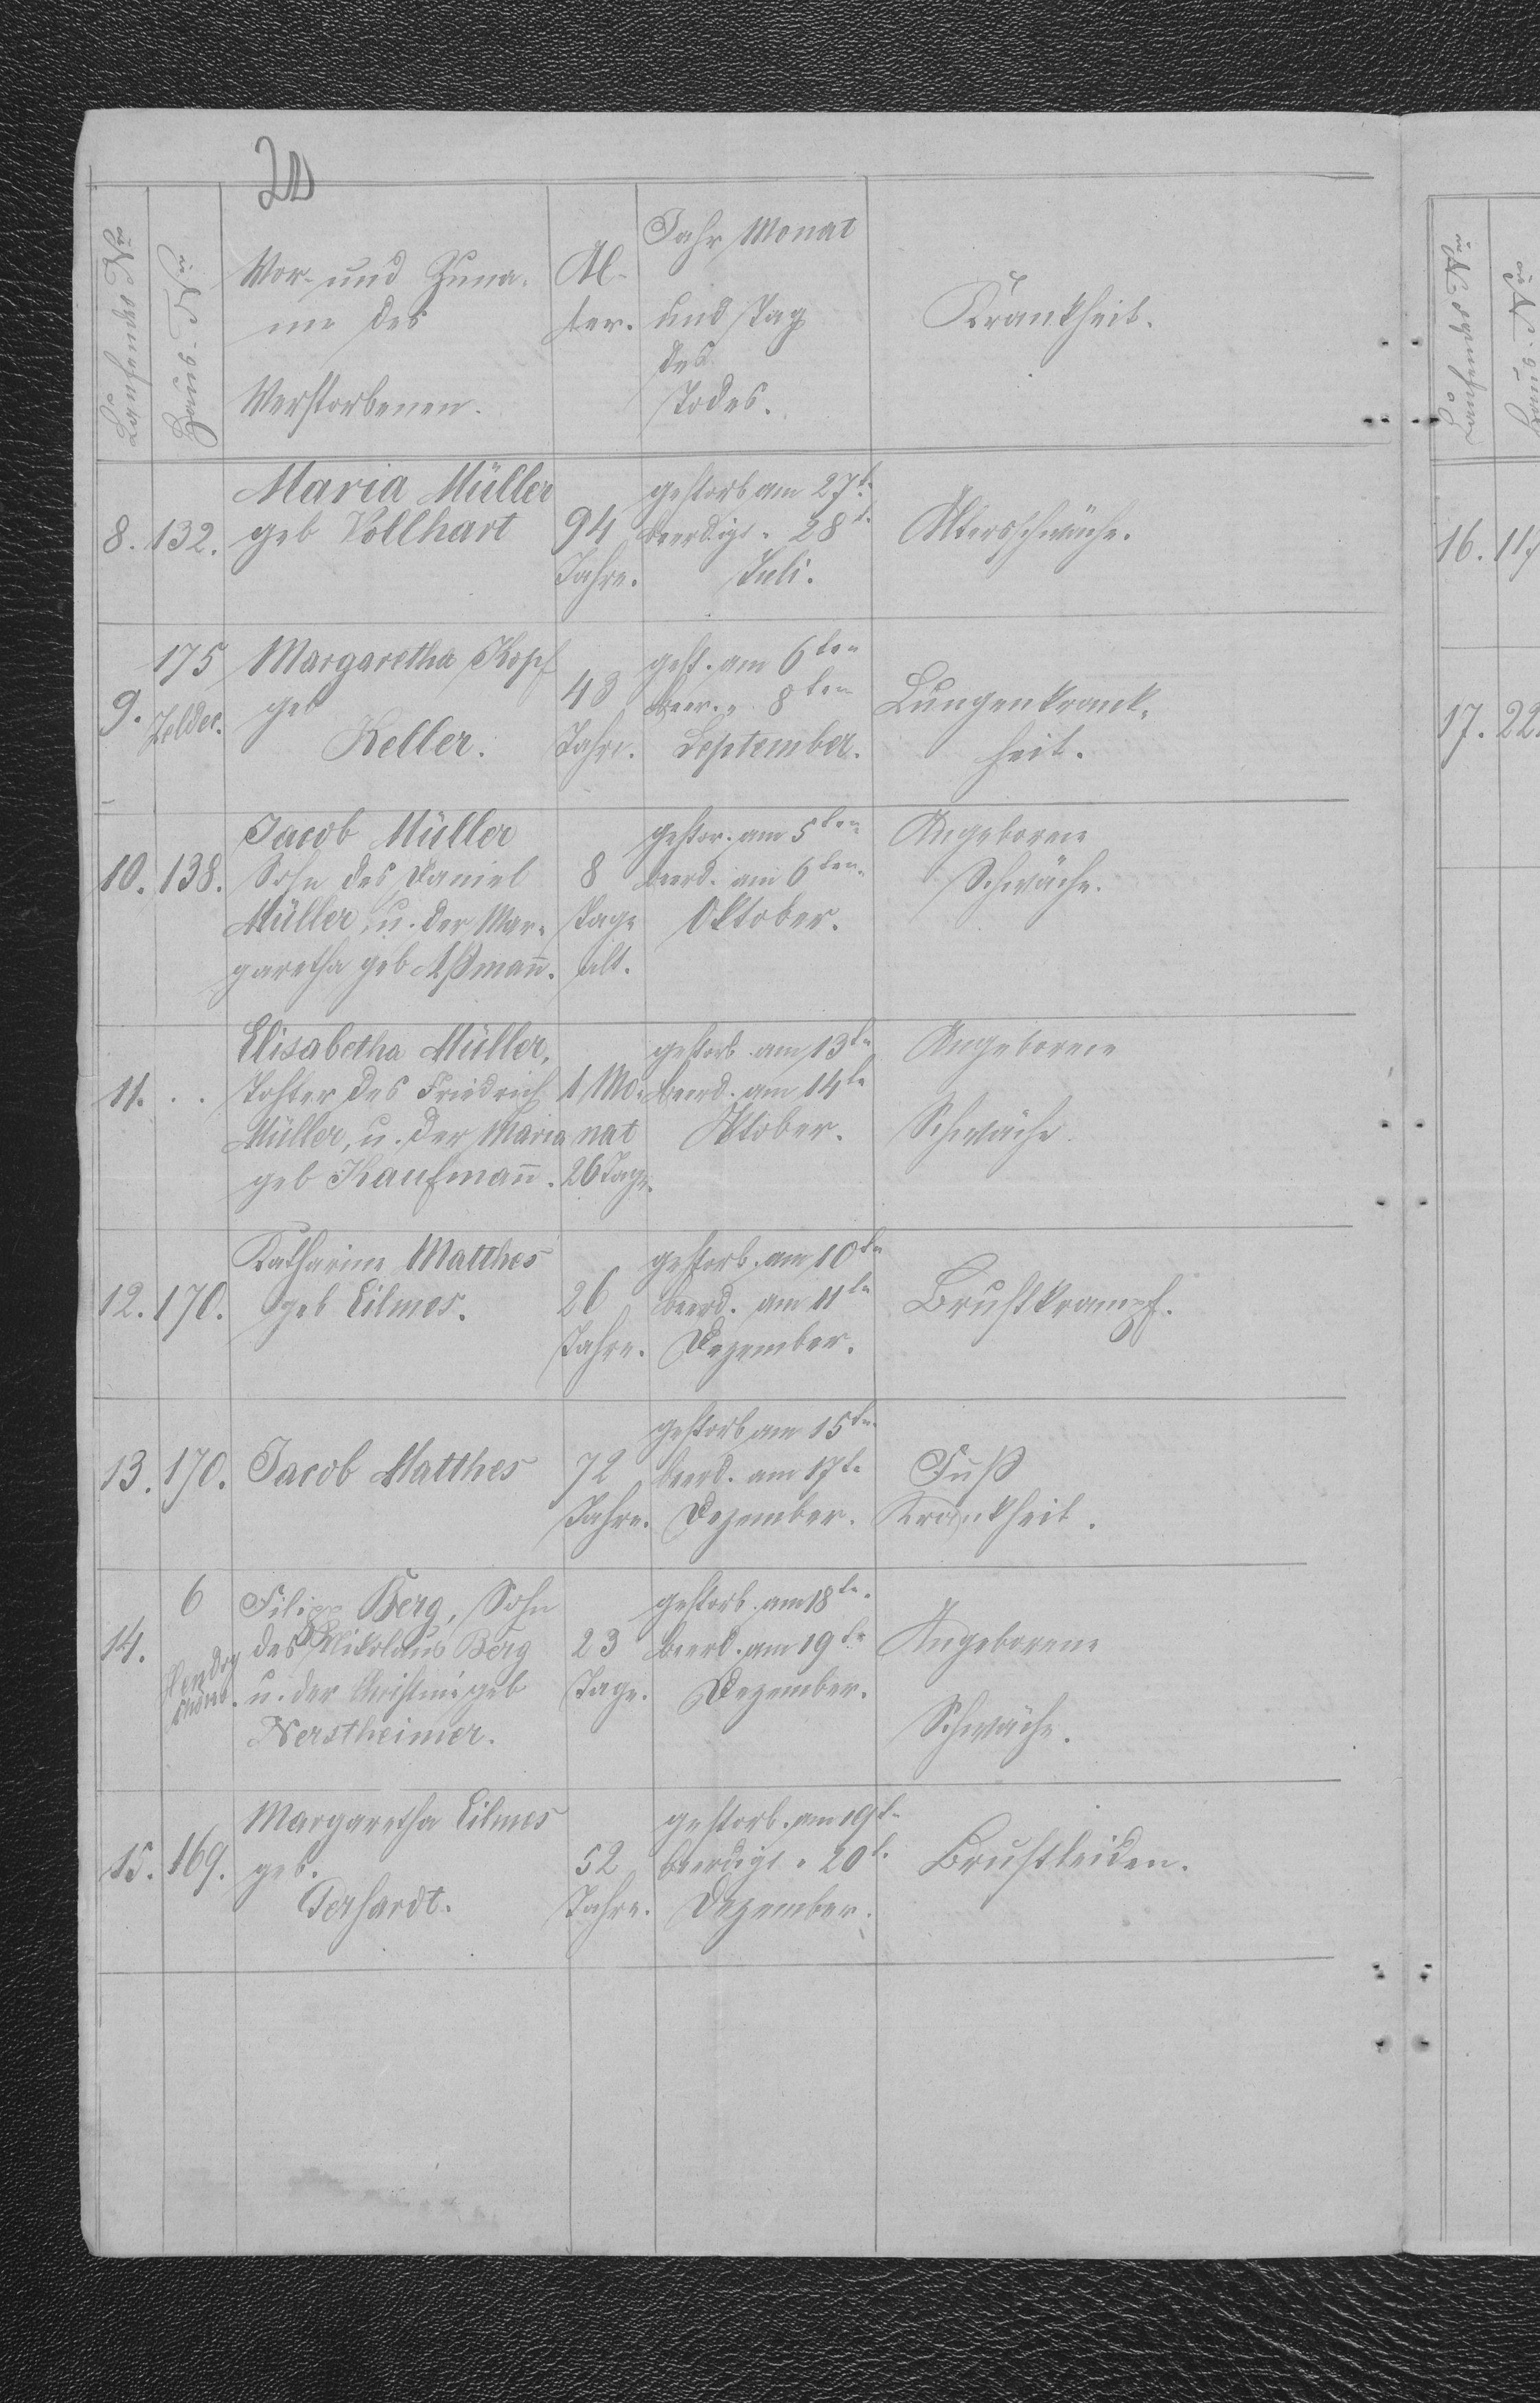 20
Laufende Nro
Haus-Nro
Vor- und Zuna-
me des
Verstorbenen.
Al-
ter.
Jahr Monat
und Tag
des
Todes.
Krankheit.
8. 132.
Maria Müller
geb Vollhart
94
Jahre.
gestorb am 27t.
beerdigt " 28t.
Juli.
Altersschwäche.
9.
175
Zelder.
Margaretha Kopf
geb
Keller.
43
Jahre.
gest. am 6ten
beer. " 8ten
September.
Lungenkrank-
heit.
10. 138.
Jacob Müller
Sohn des Daniel
Müller u. der Mar-
garetha geb Aßmañ.
8
Tage
alt.
gestor. am 5ten
beerd. am 6ten
Oktober.
Angeborene
Schwäche.
11. . .
Elisabetha Müller,
Tohter des Friedrich
Müller, u. der Maria
geb Kaufmañ.
1 Mo-
nat
26 Tage.
gestorb. am 13tn
beerd. am 14tn
Oktober.
Angeborene
Schwäche
12. 170.
Katharine Matthes
geb Eilmes.
26
Jahre.
gestorb. am 10tn
beerd. am 11tn
Dezember.
Brustkrampf.
13. 170.
Jacob Matthes
72
Jahre.
gestorb am 15tn
beerd. am 17tn
Dezember.
Fuß
Krankheit.
14.
6
Filipp Berg, Sohn
des Nikolaus Berg
u. der Christine geb
Nerstheimer.
23
Tage.
gestorb. am 18tn
beerd. am 19tn
Dezember.
Angeborene
Schwäche.
15. 169.
Margaretha Eilmes
geb.
Gerhardt.
52
Jahre.
gestorb. am 19tn
beerdigt " 20t.
Dezember.
Brustleiden.
Laufende Nro
Haus-Nro
16. 11
17. 22